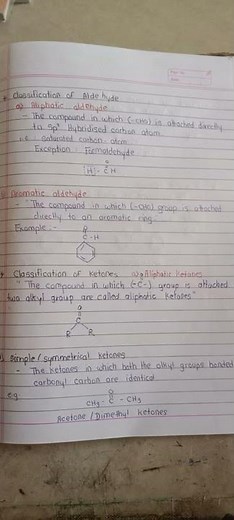 Classification of Aldehyde
a) Aliphatic aldehyde
- The compound in which (-CHO) is attached directly
to sp³ Hybridised carbon atom.
i.e. saturated carbon atom.
Exception : Formaldehyde
O
[H] - C H
Aromatic aldehyde
- "The compound in which (-CHO) group is attached
directly to an aromatic ring."
Example :-
O
C - H
Classification of Ketones a) Aliphatic Ketones
" The compound in which (-C-) group is attached
two alkyl group are called aliphatic ketones"
O
C
R R
Simple / symmetrical ketones
- The ketones in which both the alkyl groups bonded
carbonyl carbon are identical.
eg.
O
CH₃ - C - CH₃
Acetone / Dimethyl ketones